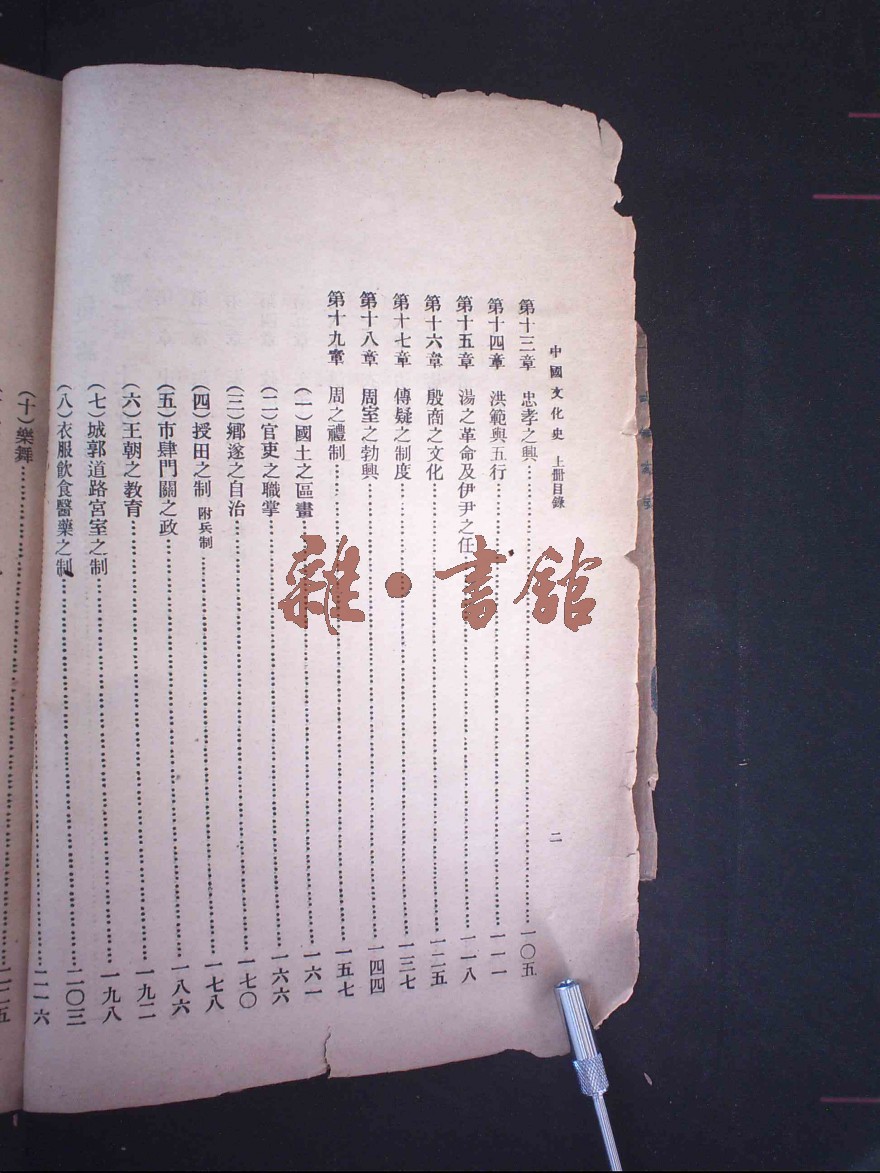 中國文化史 上册目錄 二
第十三章 忠孝之興……一〇五
第十四章 洪範與五行……一一一
第十五章 湯之革命及伊尹之任……一一八
第十六章 殷商之文化……一二五
第十七章 傳疑之制度……一三七
第十八章 周室之勃興……一四四
第十九章 周之禮制……一五七
(一)國土之區畫……一六一
(二)官吏之職掌……一六六
(三)鄉遂之自治……一七〇
(四)授田之制 附兵制……一七八
(五)市肆門關之政……一八六
(六)王朝之教育……一九二
(七)城郭道路宮室之制……一九八
(八)衣服飲食醫藥之制……二〇三
……二一六
(十)樂舞……二二五
雜·書館